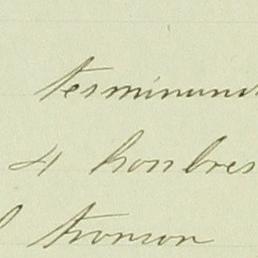 terminund
4 honbres
l tronson